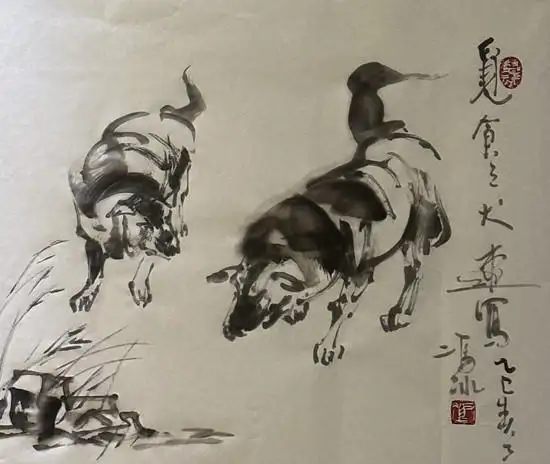 覓食之犬速寫乙巳春
馮冰